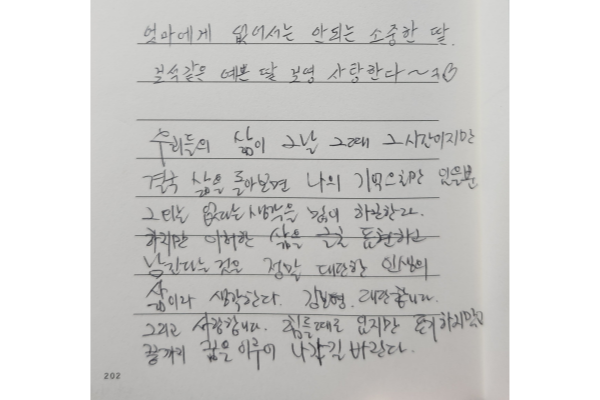 엄마에게 없어서는 안되는 소중한 딸.
보석같은 예쁜 딸 보영 사랑한다~♡
우리들의 삶이 그날 그때 그시간이지만
결국 삶을 돌아보면 나의 기억으로만 있을뿐
그 외는 없다는 생각을 많이 하곤한다.
하지만 이러한 삶을 글로 표현하고
남긴다는 것은 정말 대단한 인생의
삶이라 생각한다. 김보영. 대단합니다.
그리고 사랑합니다. 힘들때도 있지만 포기하지말고
끝까지 꿈을 이루어 나가길 바란다.
202